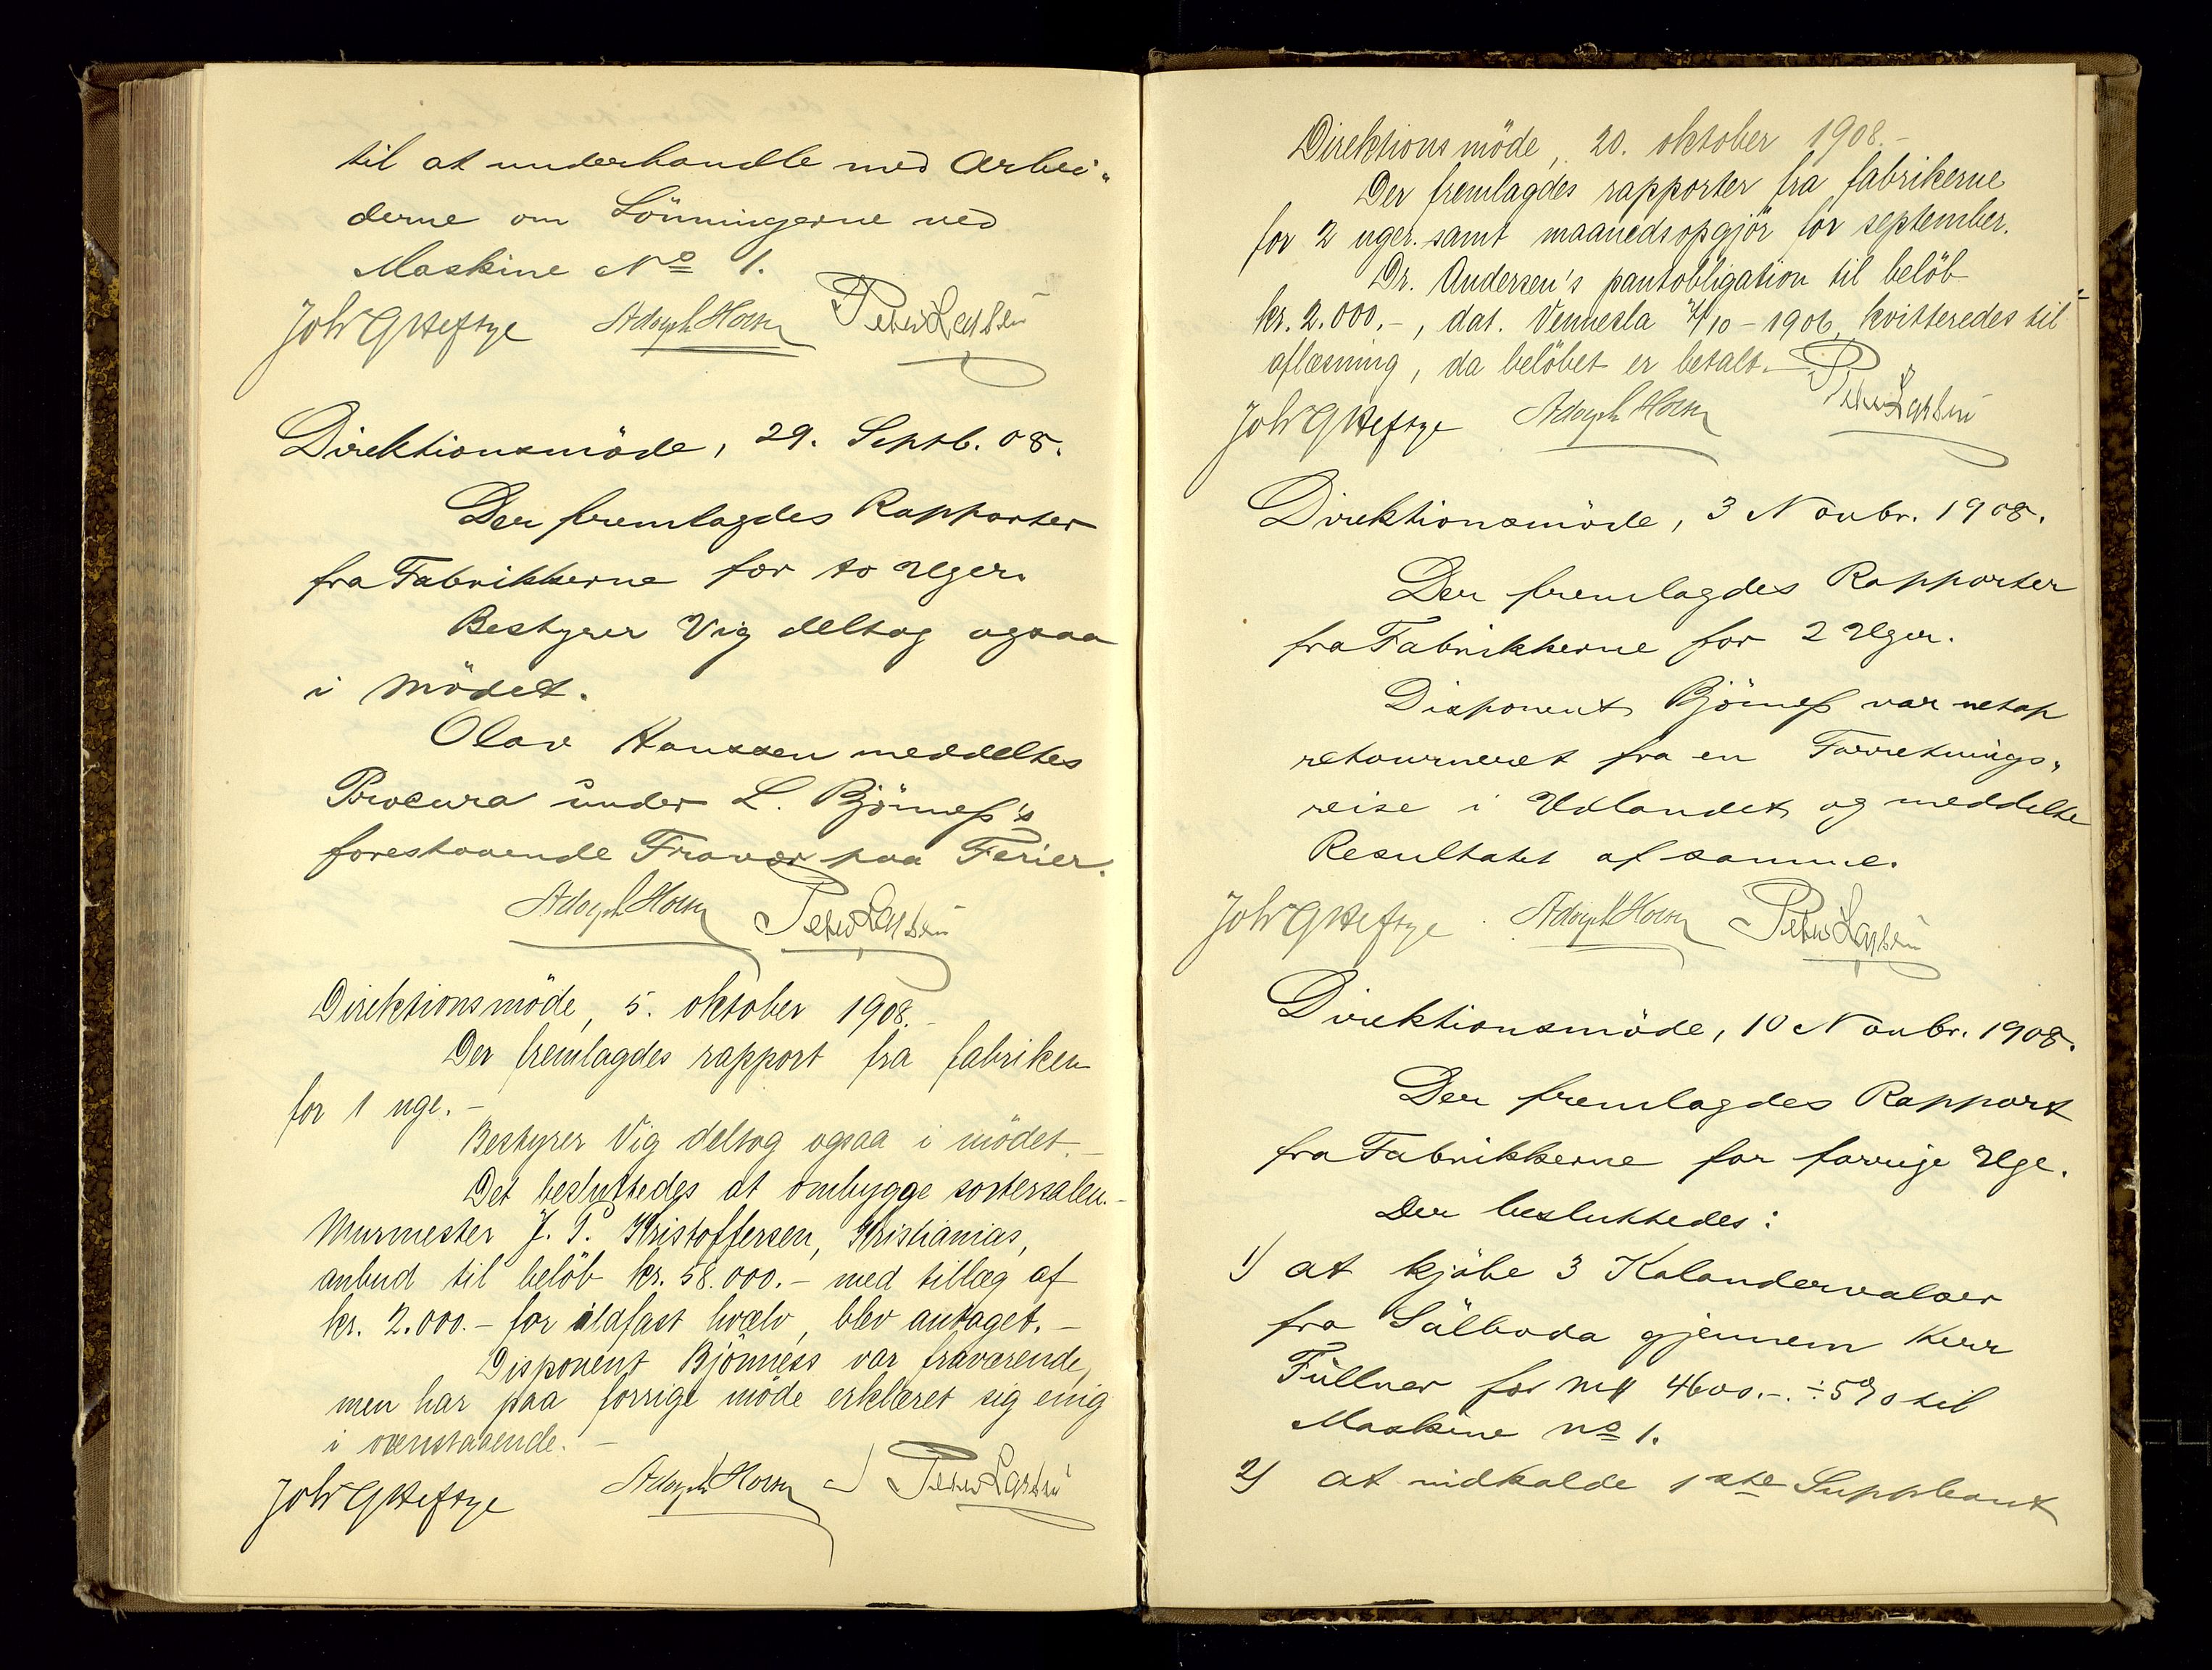 til at underhandle med Arbei-
derne om Lönningerne ved
Maskine No 1.
Joh G Heftye Adolph Hoen Peter Larsen
Direktionsmöde, 29. Septb. 08.
Der fremlagdes Rapporter
fra Fabrikkerne for to Uger.
Bestyrer Vig deltog ogsaa
i Mödet.
Olav Hanssen meddeltes
Procura under L. Björneß's
forestaaende Fravær paa Ferier.
Adolph Hoen Peter Larsen
Direktionsmöde, 5. oktober 1908.-
Der fremlagdes rapport fra fabriken
for 1 uge.-
Bestyrer Vig deltog ogsaa i mödet.-
Det besluttedes at ombygge sortersalen.-
Murmester J. P. Kristoffersen, Kristianias,
anbud til belöb kr. 58.000.- med tillæg af
kr. 2.000.- for ildfast hvælv, blev antaget.-
Disponent Björness var fraværende,
men har paa forrige möde erklæret sig enig
i ovenstaaende.-
Joh G Heftye Adolph Hoen Peter Larsen
Direktionsmöde, 20. oktober 1908.-
Der fremlagdes rapporter fra fabrikerne
for 2 uger. samt maanedsopgjör for september.
Dr. Andersen's pantobligation til belöb
kr. 2.000.-, dat. Vennesla /10-1906, kvitteredes til
aflæsning, da belöbet er betalt.-
Joh G Heftye Adolph Hoen Peter Larsen
Direktionsmöde, 3 Novbr. 1908.
Der fremlagdes Rapporter
fra Fabrikkerne for 2 Uger.
Disponent Björneß var netop
retourneret fra en Forretnings-
reise i Udlandet og meddelte
Resultatet af samme.
Joh G Heftye Adolph Hoen Peter Larsen
Direktionsmöde, 10 Novbr. 1908.
Der fremlagdes Rapport
fra Fabrikkerne for forrige Uge.
Der besluttedes:
1) at kjöbe 3 Kalandervalser
fra Sälboda gjennem Herr
Füllner for Mk 4600.-. ÷5% til
Maskine no 1.
2) at indkalde 1ste Suppleant